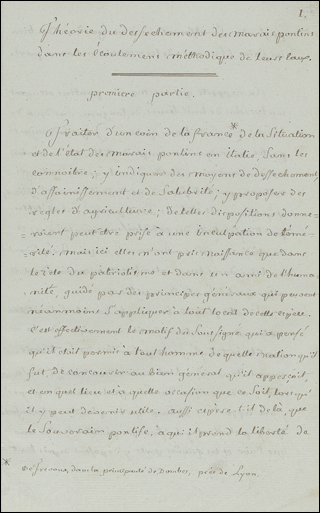 1.
Théorie du dessechement des marais pontins
dans les écoulement méthodique de leurs eaux.
premiere partie.
Traiter d'un coin de la france* de la Situation
et de l'état des marais pontins en italie, Sans les
connoitre; y indiquer des moyens de dessechement
d'assainissement et de Salubrité; y proposer des
regles d'agriculture; de telles dispositions donne-
roient peut être prise à une inculpation de témé-
rité. mais ici elles n'ont pris naissance que dans
le zele du patriotisme et dans un ami de l'huma-
nité, guidé par des principes généraux qui peuvent
neanmoins S'appliquer à tout local de cette espece.
C'est effectivement le motif du Soussigné qui a pensé
qu'il étoit permis à tout homme, de quelle nation qu'il
fut, de concourir au bien général qu'il apperçoit,
et en quel lieu et à quelle occasion que ce Soit, lorsqu'
il y peut devenir utile. aussi espere-t-il de là, que
le Souverain pontife, à qui il prend la liberté de
* dans la principauté de Dombes, près de Lyon.